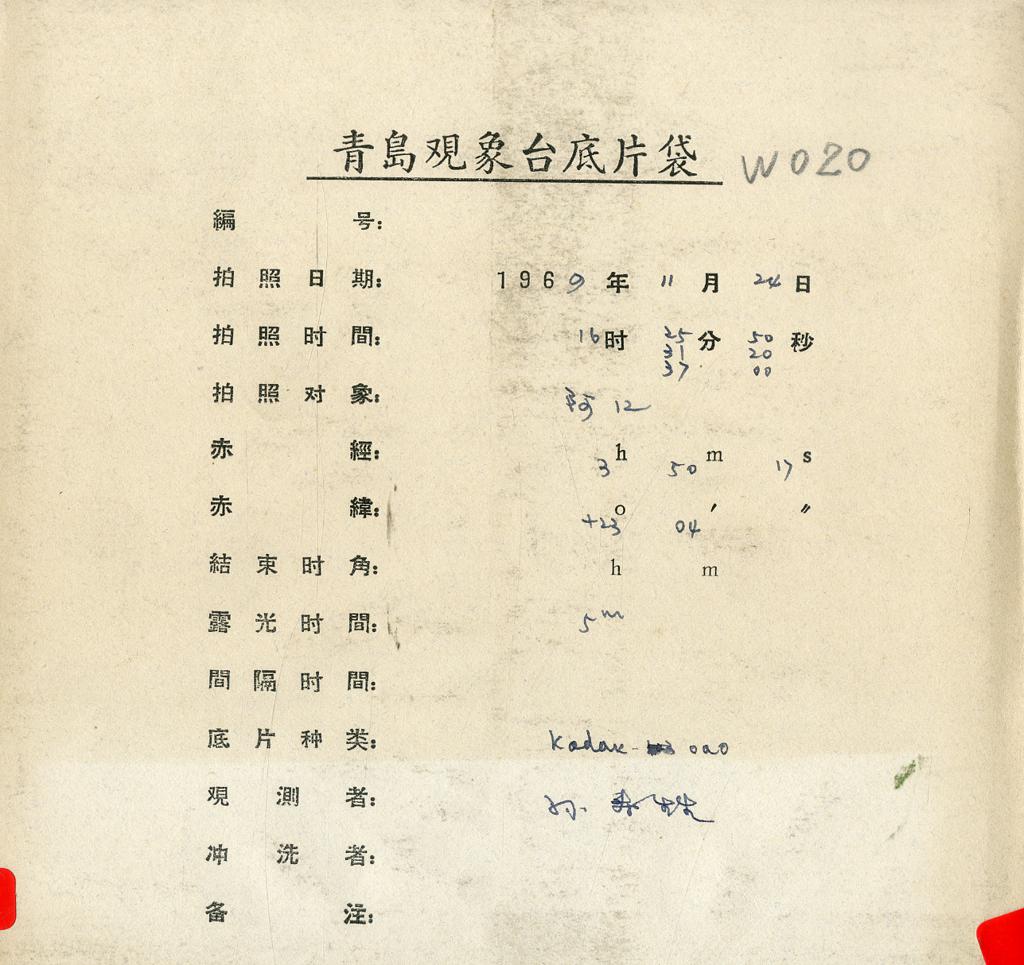 青島观象台底片袋 W020
編号:
拍照日期: 1969年 11月 24日
拍照时間: 16时 25分 50秒
31 20
37 00
拍照对象: 阿 12
赤經: 3h 50m 17s
赤緯: +23° 04′ ″
結束时角: h m
露光时間: 5m
間隔时間:
底片种类: Kodak- 0a0
观測者: 孙
冲洗者:
备注: